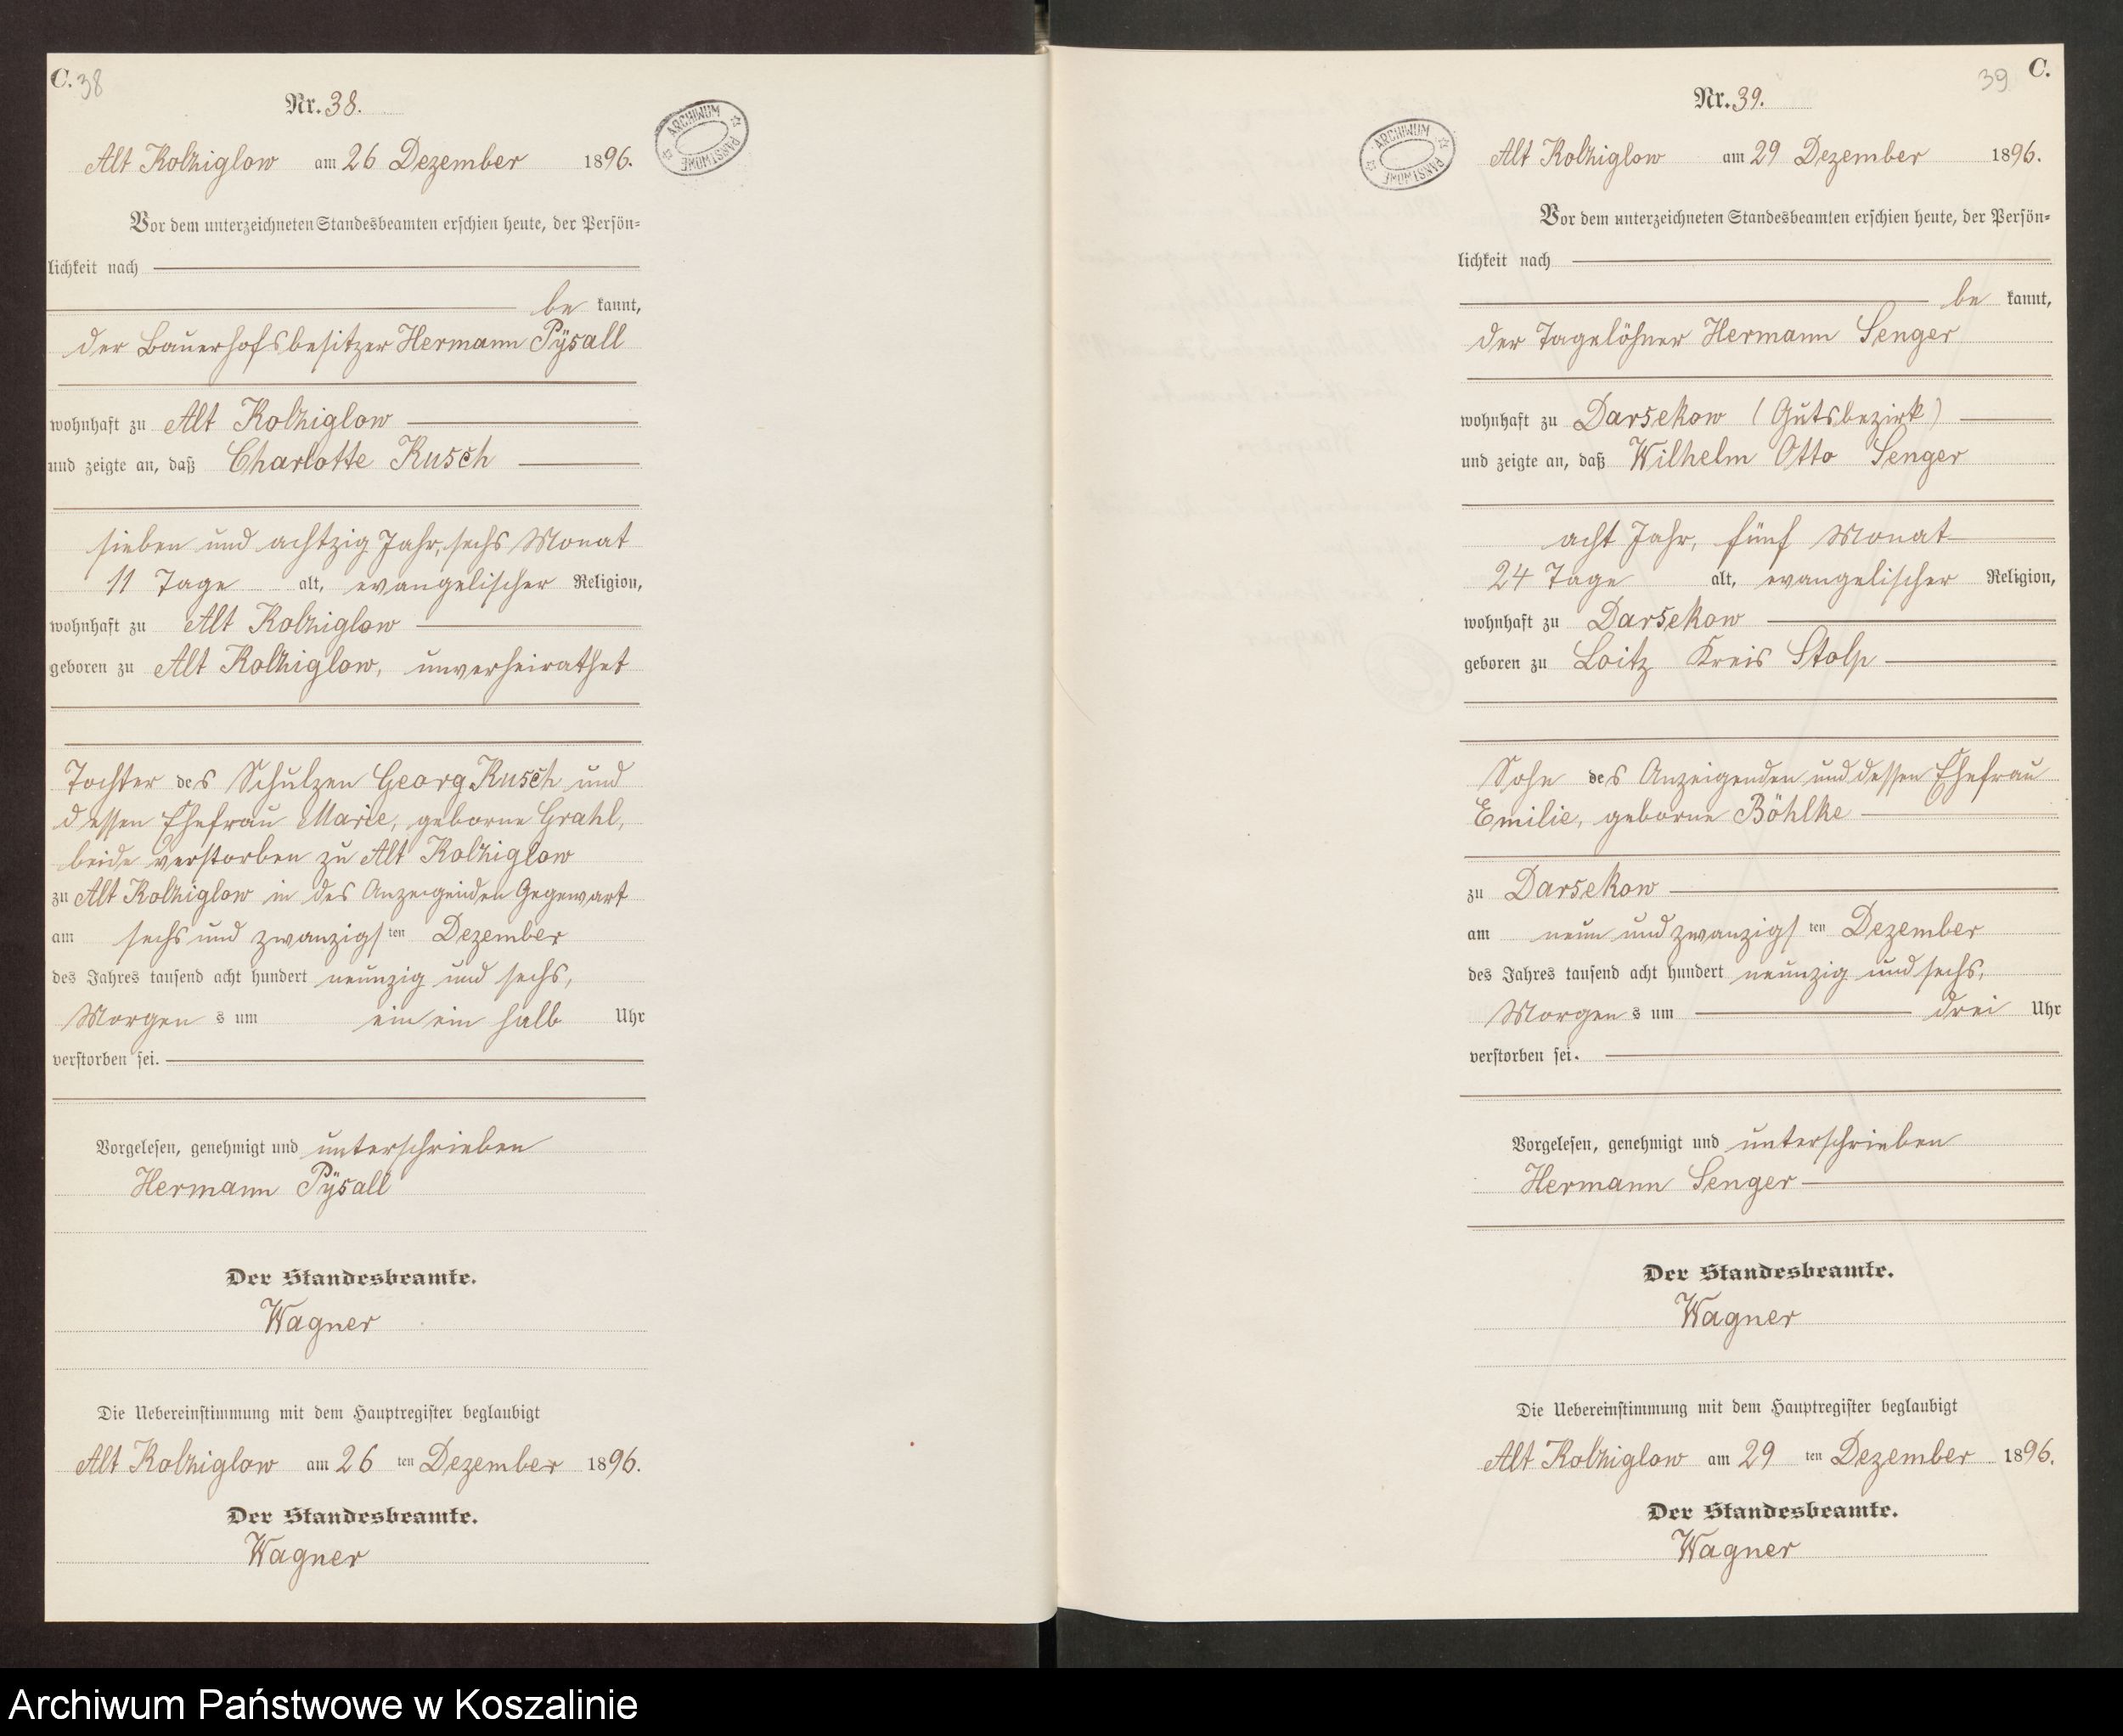 C. 38
Nr. 38.
Alt Kolziglow am 26 Dezember 1896.
Vor dem unterzeichneten Standesbeamten erschien heute, der Persön-
lichkeit nach
be kannt,
der Bauerhofsbesitzer Hermann Pÿsall
wohnhaft zu Alt Kolziglow
und zeigte an, daß Charlotte Kusch
sieben und achtzig Jahr, sechs Monat
11 Tage alt, evangelischer Religion,
wohnhaft zu Alt Kolziglow
geboren zu Alt Kolziglow, unverheirathet
Tochter des Schulzen Georg Kusch und
dessen Ehefrau Marie, geborne Grahl,
beide verstorben zu Alt Kolziglow
zu Alt Kolziglow in des Anzeigenden Gegenwart
am sechs und zwanzigsten Dezember
des Jahres tausend acht hundert neunzig und sechs,
Morgen s um ein ein halb Uhr
verstorben sei.
Vorgelesen, genehmigt und unterschrieben
Hermann Pÿsall
Der Standesbeamte.
Wagner
Die Uebereinstimmung mit dem Hauptregister beglaubigt
Alt Kolziglow am 26 ten Dezember 1896.
Der Standesbeamte.
Wagner
ARCHIWUM PAŃSTWOWE
39 C.
Nr. 39.
ARCHIWUM PAŃSTWOWE
Alt Kolziglow am 29 Dezember 1896.
Vor dem unterzeichneten Standesbeamten erschien heute, der Persön-
lichkeit nach
be kannt,
der Tagelöhner Hermann Senger
wohnhaft zu Darsekow (Gutsbezirk)
und zeigte an, daß Wilhelm Otto Senger
acht Jahr, fünf Monat
24 Tage alt, evangelischer Religion,
wohnhaft zu Darsekow
geboren zu Loitz Kreis Stolp
Sohn des Anzeigenden und dessen Ehefrau
Emilie, geborne Böhlke
zu Darsekow
am neun und zwanzigsten Dezember
des Jahres tausend acht hundert neunzig und sechs,
Morgen s um drei Uhr
verstorben sei.
Vorgelesen, genehmigt und unterschrieben
Hermann Senger
Der Standesbeamte.
Wagner
Die Uebereinstimmung mit dem Hauptregister beglaubigt
Alt Kolziglow am 29 ten Dezember 1896.
Der Standesbeamte.
Wagner
Archiwum Państwowe w Koszalinie